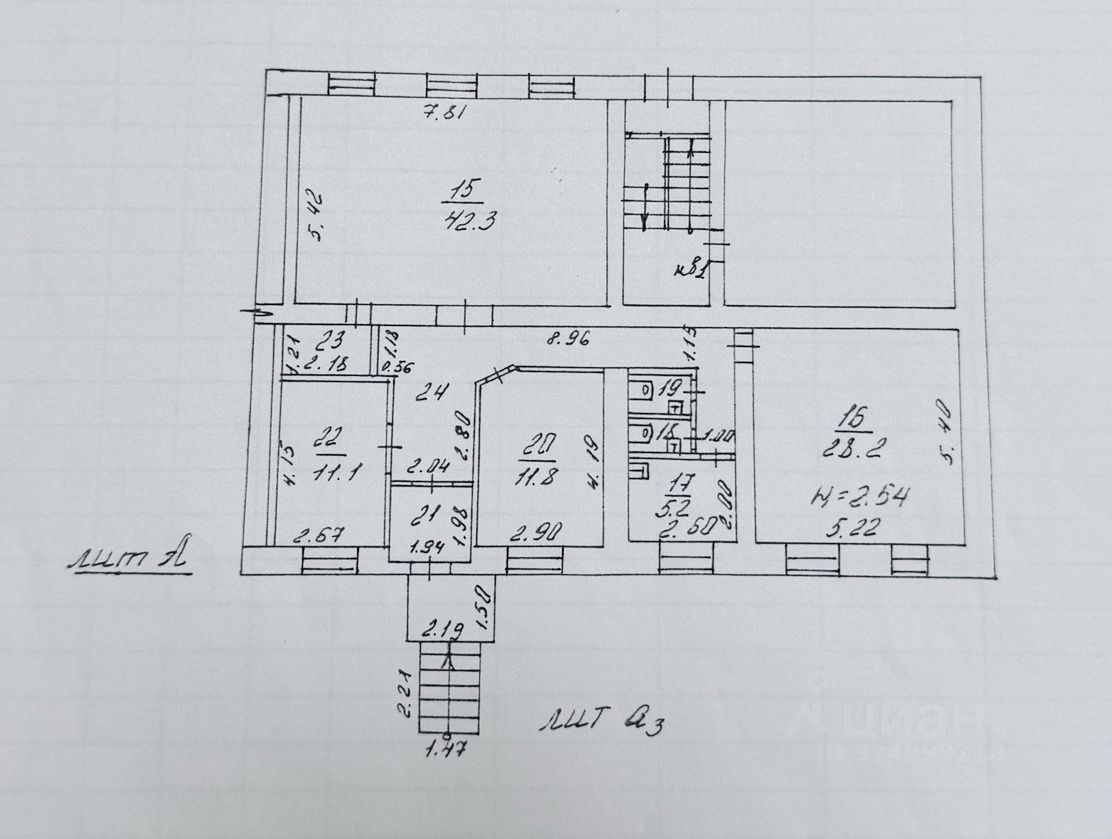 7.81
15
42.3
5.42
кв1
23
2.18
1.21
1.18
0.56
8.96
1.15
24
2.80
2.04
22
11.1
4.15
2.67
21
1.98
1.94
20
11.8
4.19
2.90
19
18
1.00
17
5.2
2.00
2.60
16
28.2
5.40
н=2.54
5.22
лит А
1.50
2.19
2.21
1.47
лит а3
циан